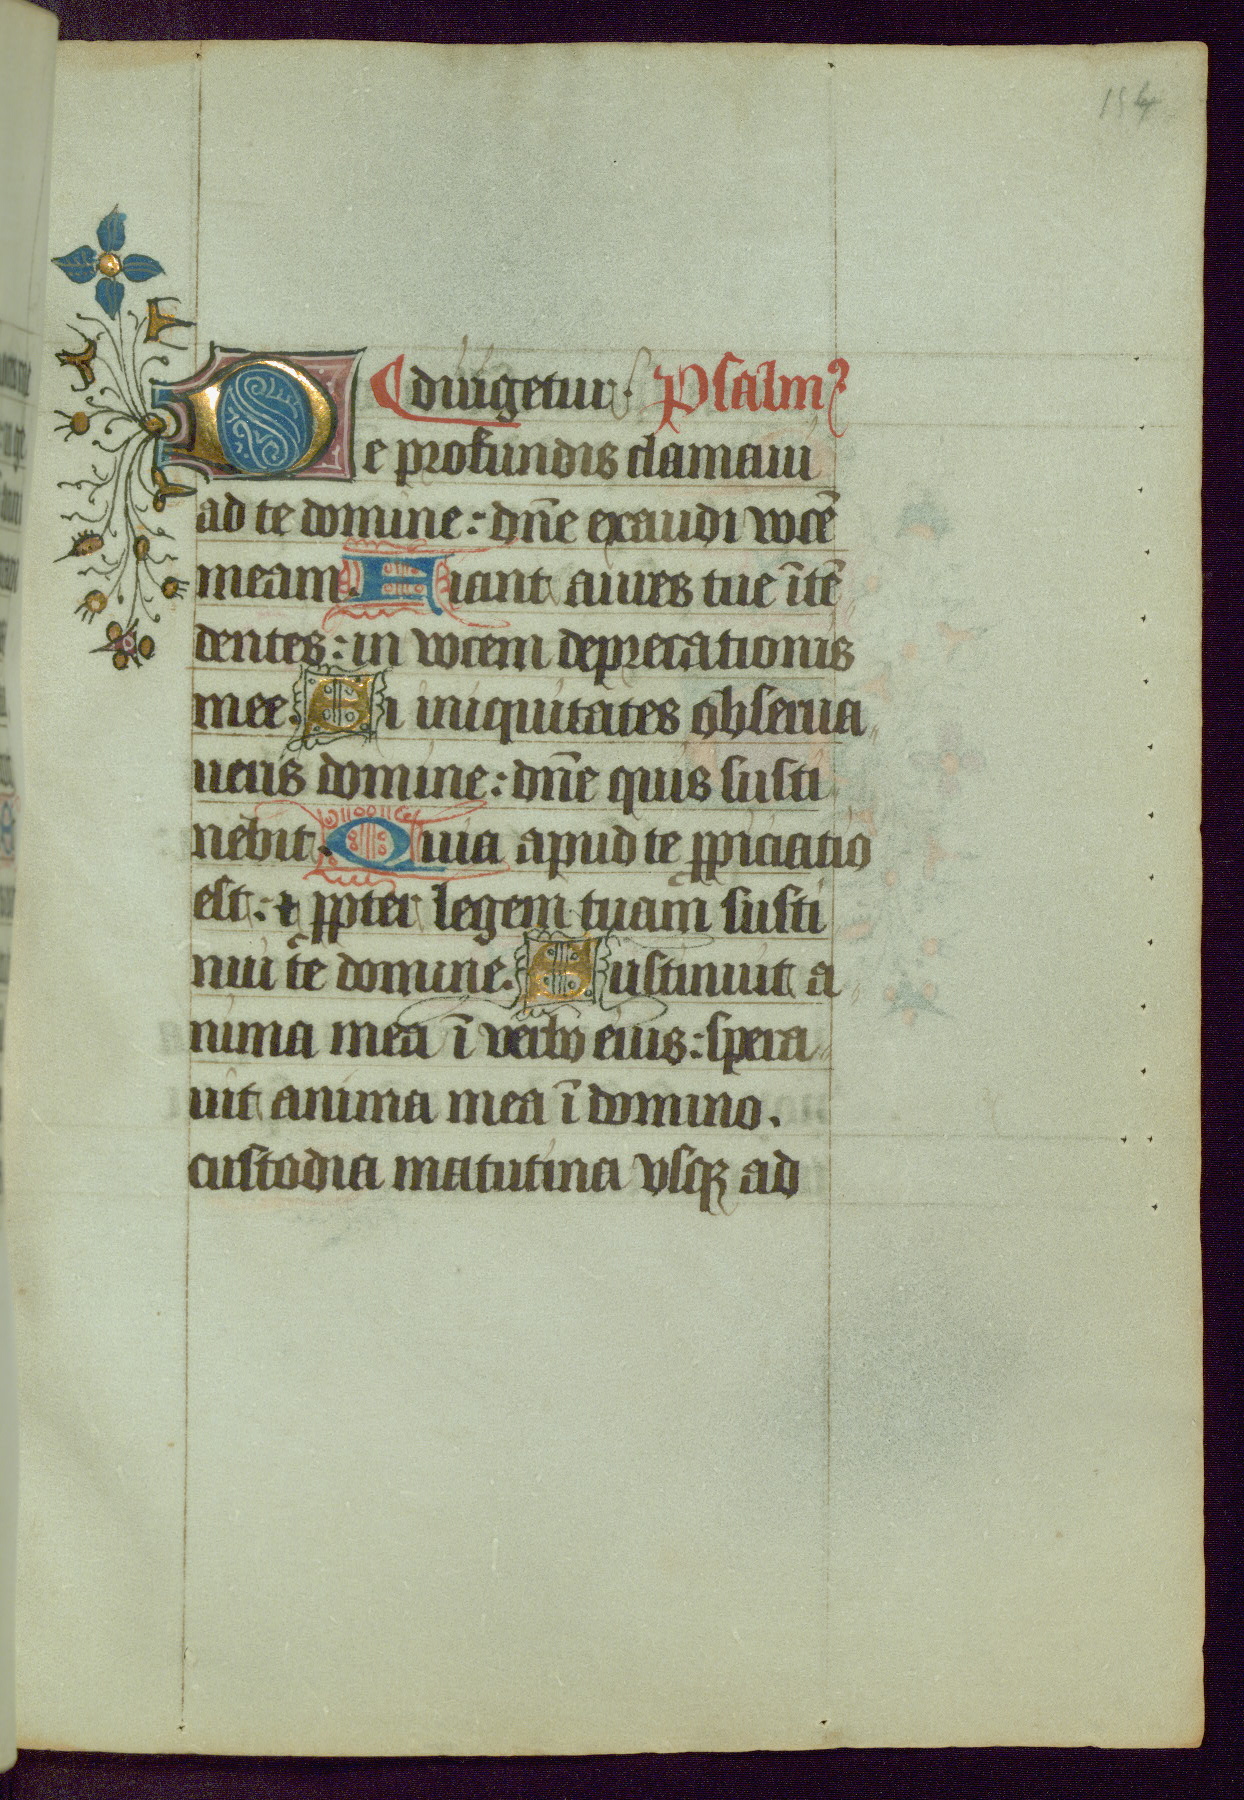 154
diuigetur. Psalm⁹
De profundis clamaui
ad te domine: dn̄e exaudi vocē
meam. Fiant aures tue ītē
dentes: in vocem deprecationis
mee. Si iniquitates obserua
ueris domine: dn̄e quis susti
nebit. Quia apud te ꝓpiciatio
est: ⁊ ꝓpter legem tuam susti
nui te domine. Sustinuit a
nima mea ī verbo eius: spera
uit anima mea ī domino.
custodia matutina vsqꝫ ad